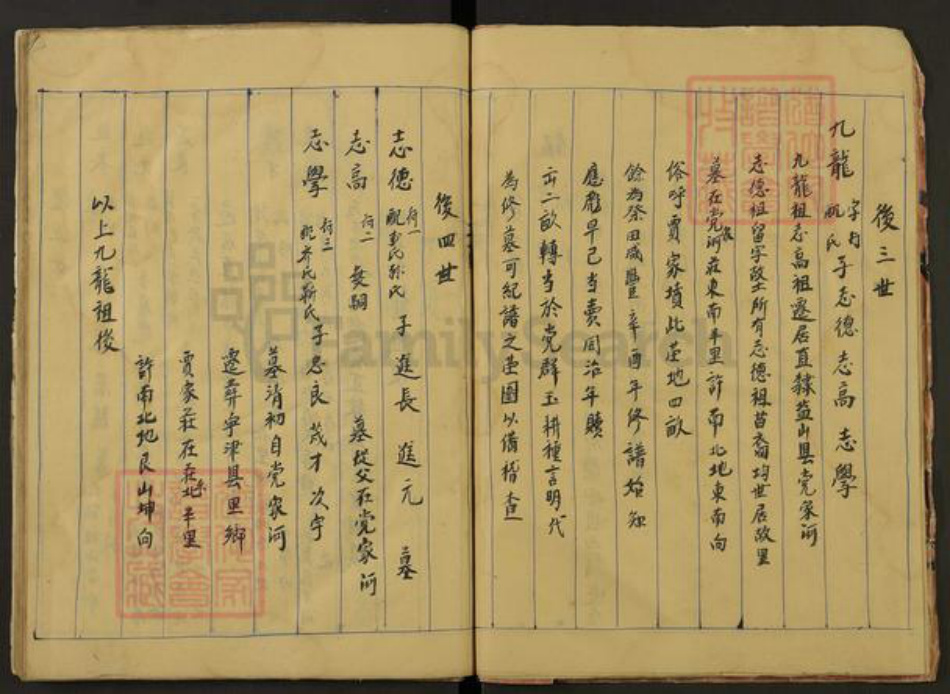 後三世
九龍 字 配 氏 子志德 志高 志學
九龍祖志高祖遷居直隸盐山县党家河
志德祖留守故土所有志德祖苗裔均世居故里
墓在党家河莊東南半里許南北地東南向
俗呼賈家墳此茔地四畝
餘為祭田咸豐辛酉年修譜始知
應彪早已当賣同治年贖
二畝轉当於党群玉耕種言明代
為修墓可紀譜之茔图以備稽查
後四世
志德 行一 配 氏孫氏 子進長 進元 墓
志高 行二 無嗣 墓從父在党家河
志學 行三 配 氏靳氏 子忠良 茂才 次字
墓清初自党家河
遷葬宁津县里鄉
賈家莊在莊北半里
許南北地艮山坤向
以上九龍祖後
FamilySearch